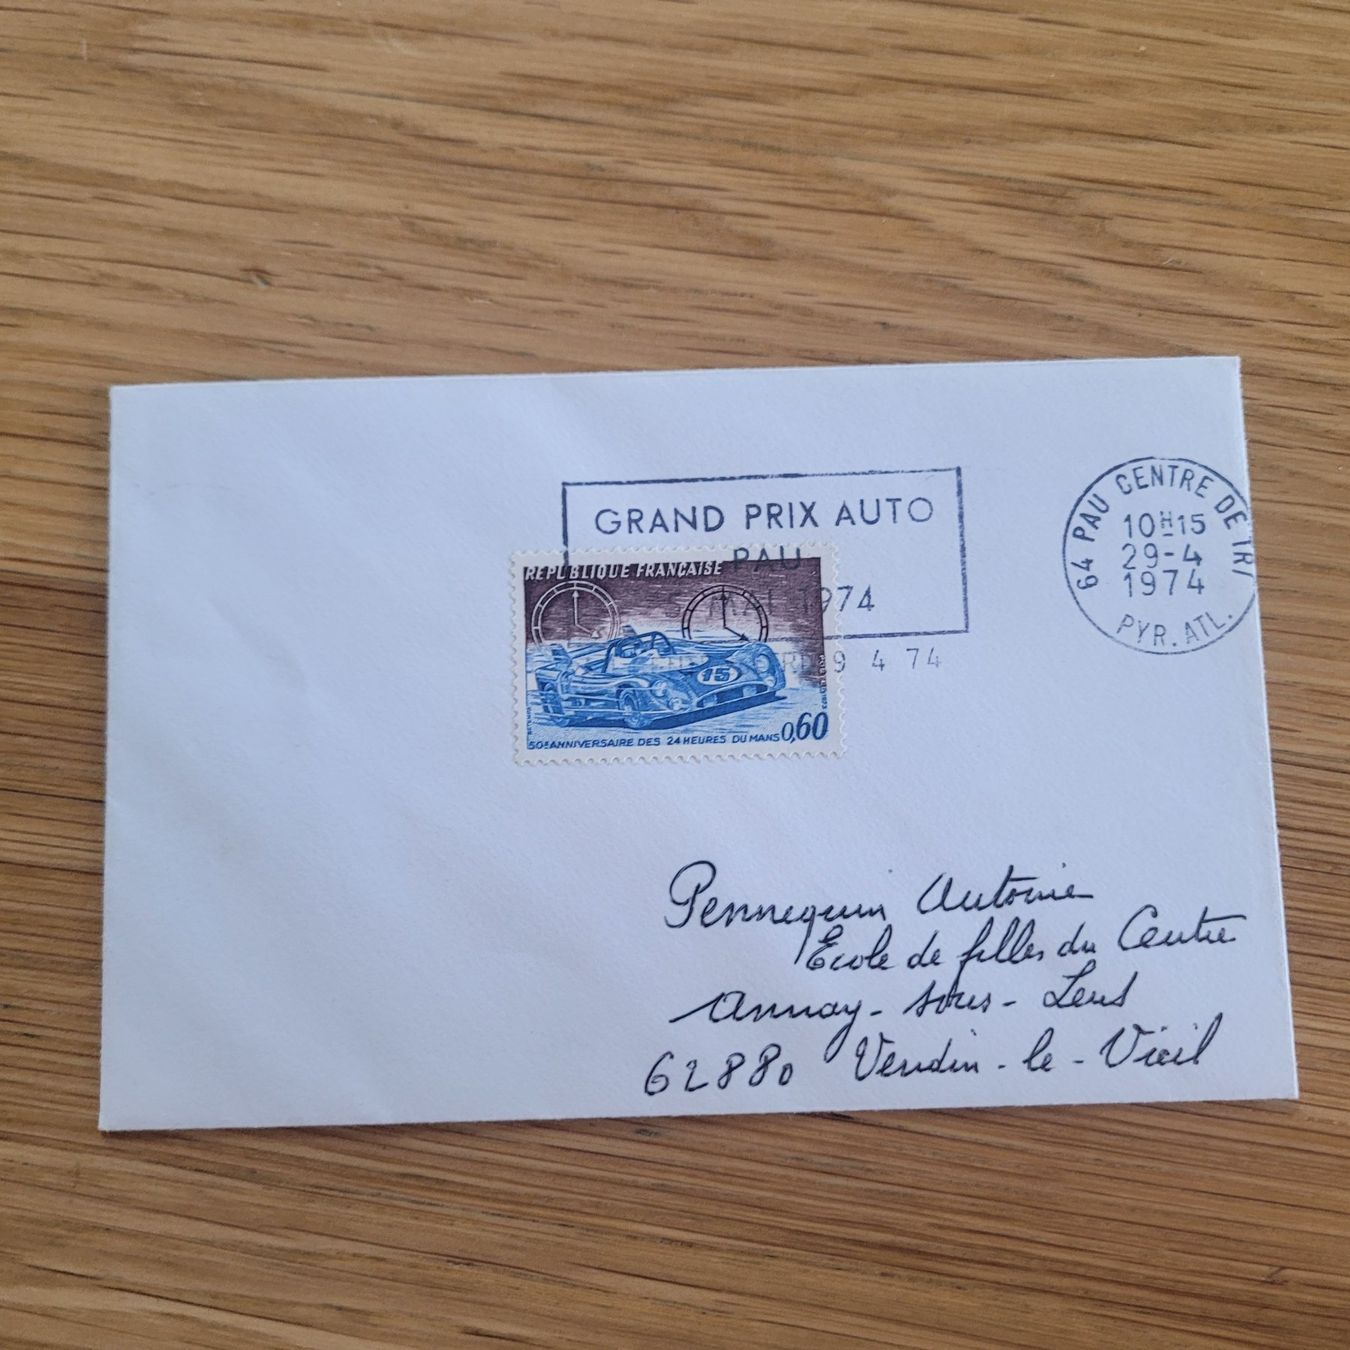 GRAND PRIX AUTO
PAU
MAI 1974
9 4 74
64 PAU CENTRE DE TRI
10H15
29-4
1974
PYR. ATL.
REPUBLIQUE FRANÇAISE
15
50e ANNIVERSAIRE DES 24 HEURES DU MANS 0,60
Pennequin Antoine
Ecole de filles du Centre
Annay-sous-Lens
62880 Vendin-le-Vieil